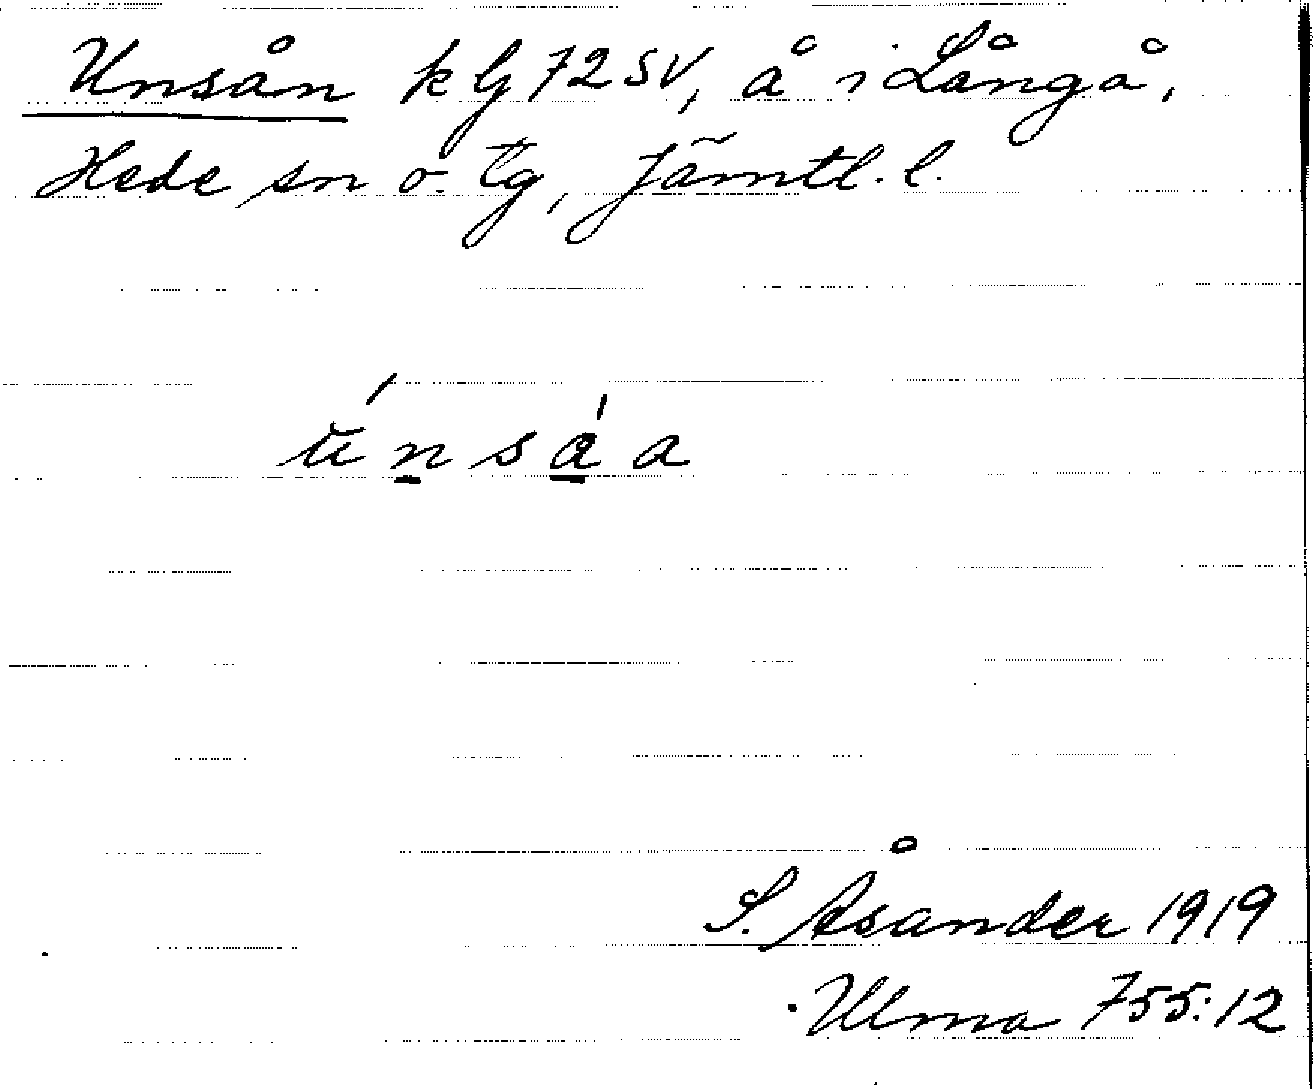 Unsån k bj 72 SV, å i Långå,
Hede sn o. tg, Jämtl. l.
únsáa
S. Åsander 1919
Ulma 755:12